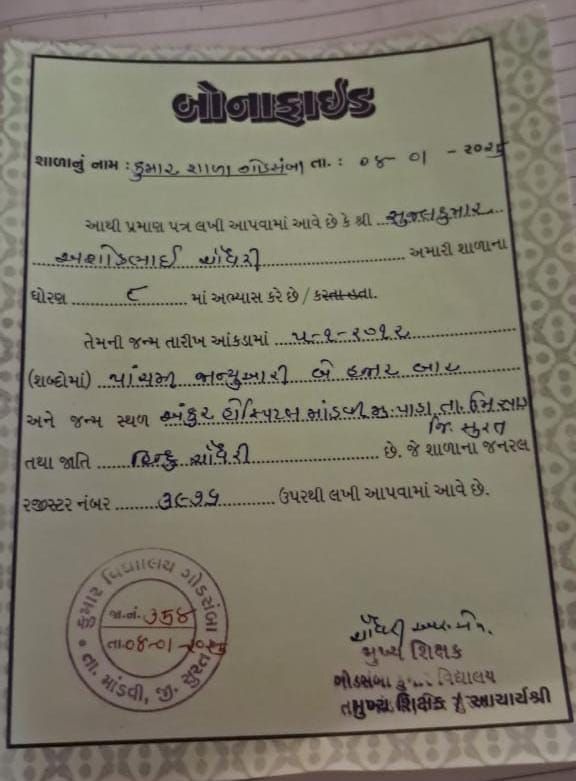 બોનાફાઈડ
શાળાનું નામ : કુમાર શાળા ગોડસંબા તા. : ૦૪- ૦૧ - ૨૦૨૫
આથી પ્રમાણ પત્ર લખી આપવામાં આવે છે કે શ્રી સુજલકુમાર
અશોકભાઈ ચૌધરી અમારી શાળાના
ધોરણ ૮ માં અભ્યાસ કરે છે / કરતા હતા.
તેમની જન્મ તારીખ આંકડામાં ૫-૧-૨૦૧૨
(શબ્દોમાં) પાંચમી જાન્યુઆરી બે હજાર બાર
અને જન્મ સ્થળ અંકુર હોસ્પિટલ માંડવી મુ. પાડા, તા.
જિ. સુરત
તથા જાતિ હિન્દુ ચૌધરી છે. જે શાળાના જનરલ
રજીસ્ટર નંબર ઉપરથી લખી આપવામાં આવે છે.
કુમાર વિદ્યાલય ગોડસંબા
જા.નં. ૩૫૪
તા. ૦૪-૦૧-૨૦૨૫
તા. માંડવી, જી. સુરત
ચૌધરી
મુખ્ય શિક્ષક
ગોડસંબા કુમાર વિદ્યાલય
મુખ્ય શિક્ષક / આચાર્યશ્રી